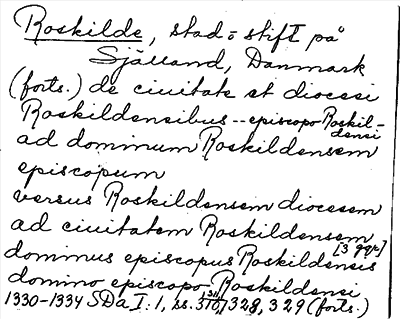 Roskilde, stad = stift på
Själland, Danmark
(forts.) de ciuitate et diocesi
Roskildensibus -- episcopo Roskil-
densi
ad dominum Roskildensem
episcopum
versus Roskildensem diocesem
ad ciuitatem Roskildensem
[3 ggr]
dominus episcopus Roskildensis
domino episcopo Roskildensi
1330-1334 SDa I:1, ss. 328, 329 (forts.)